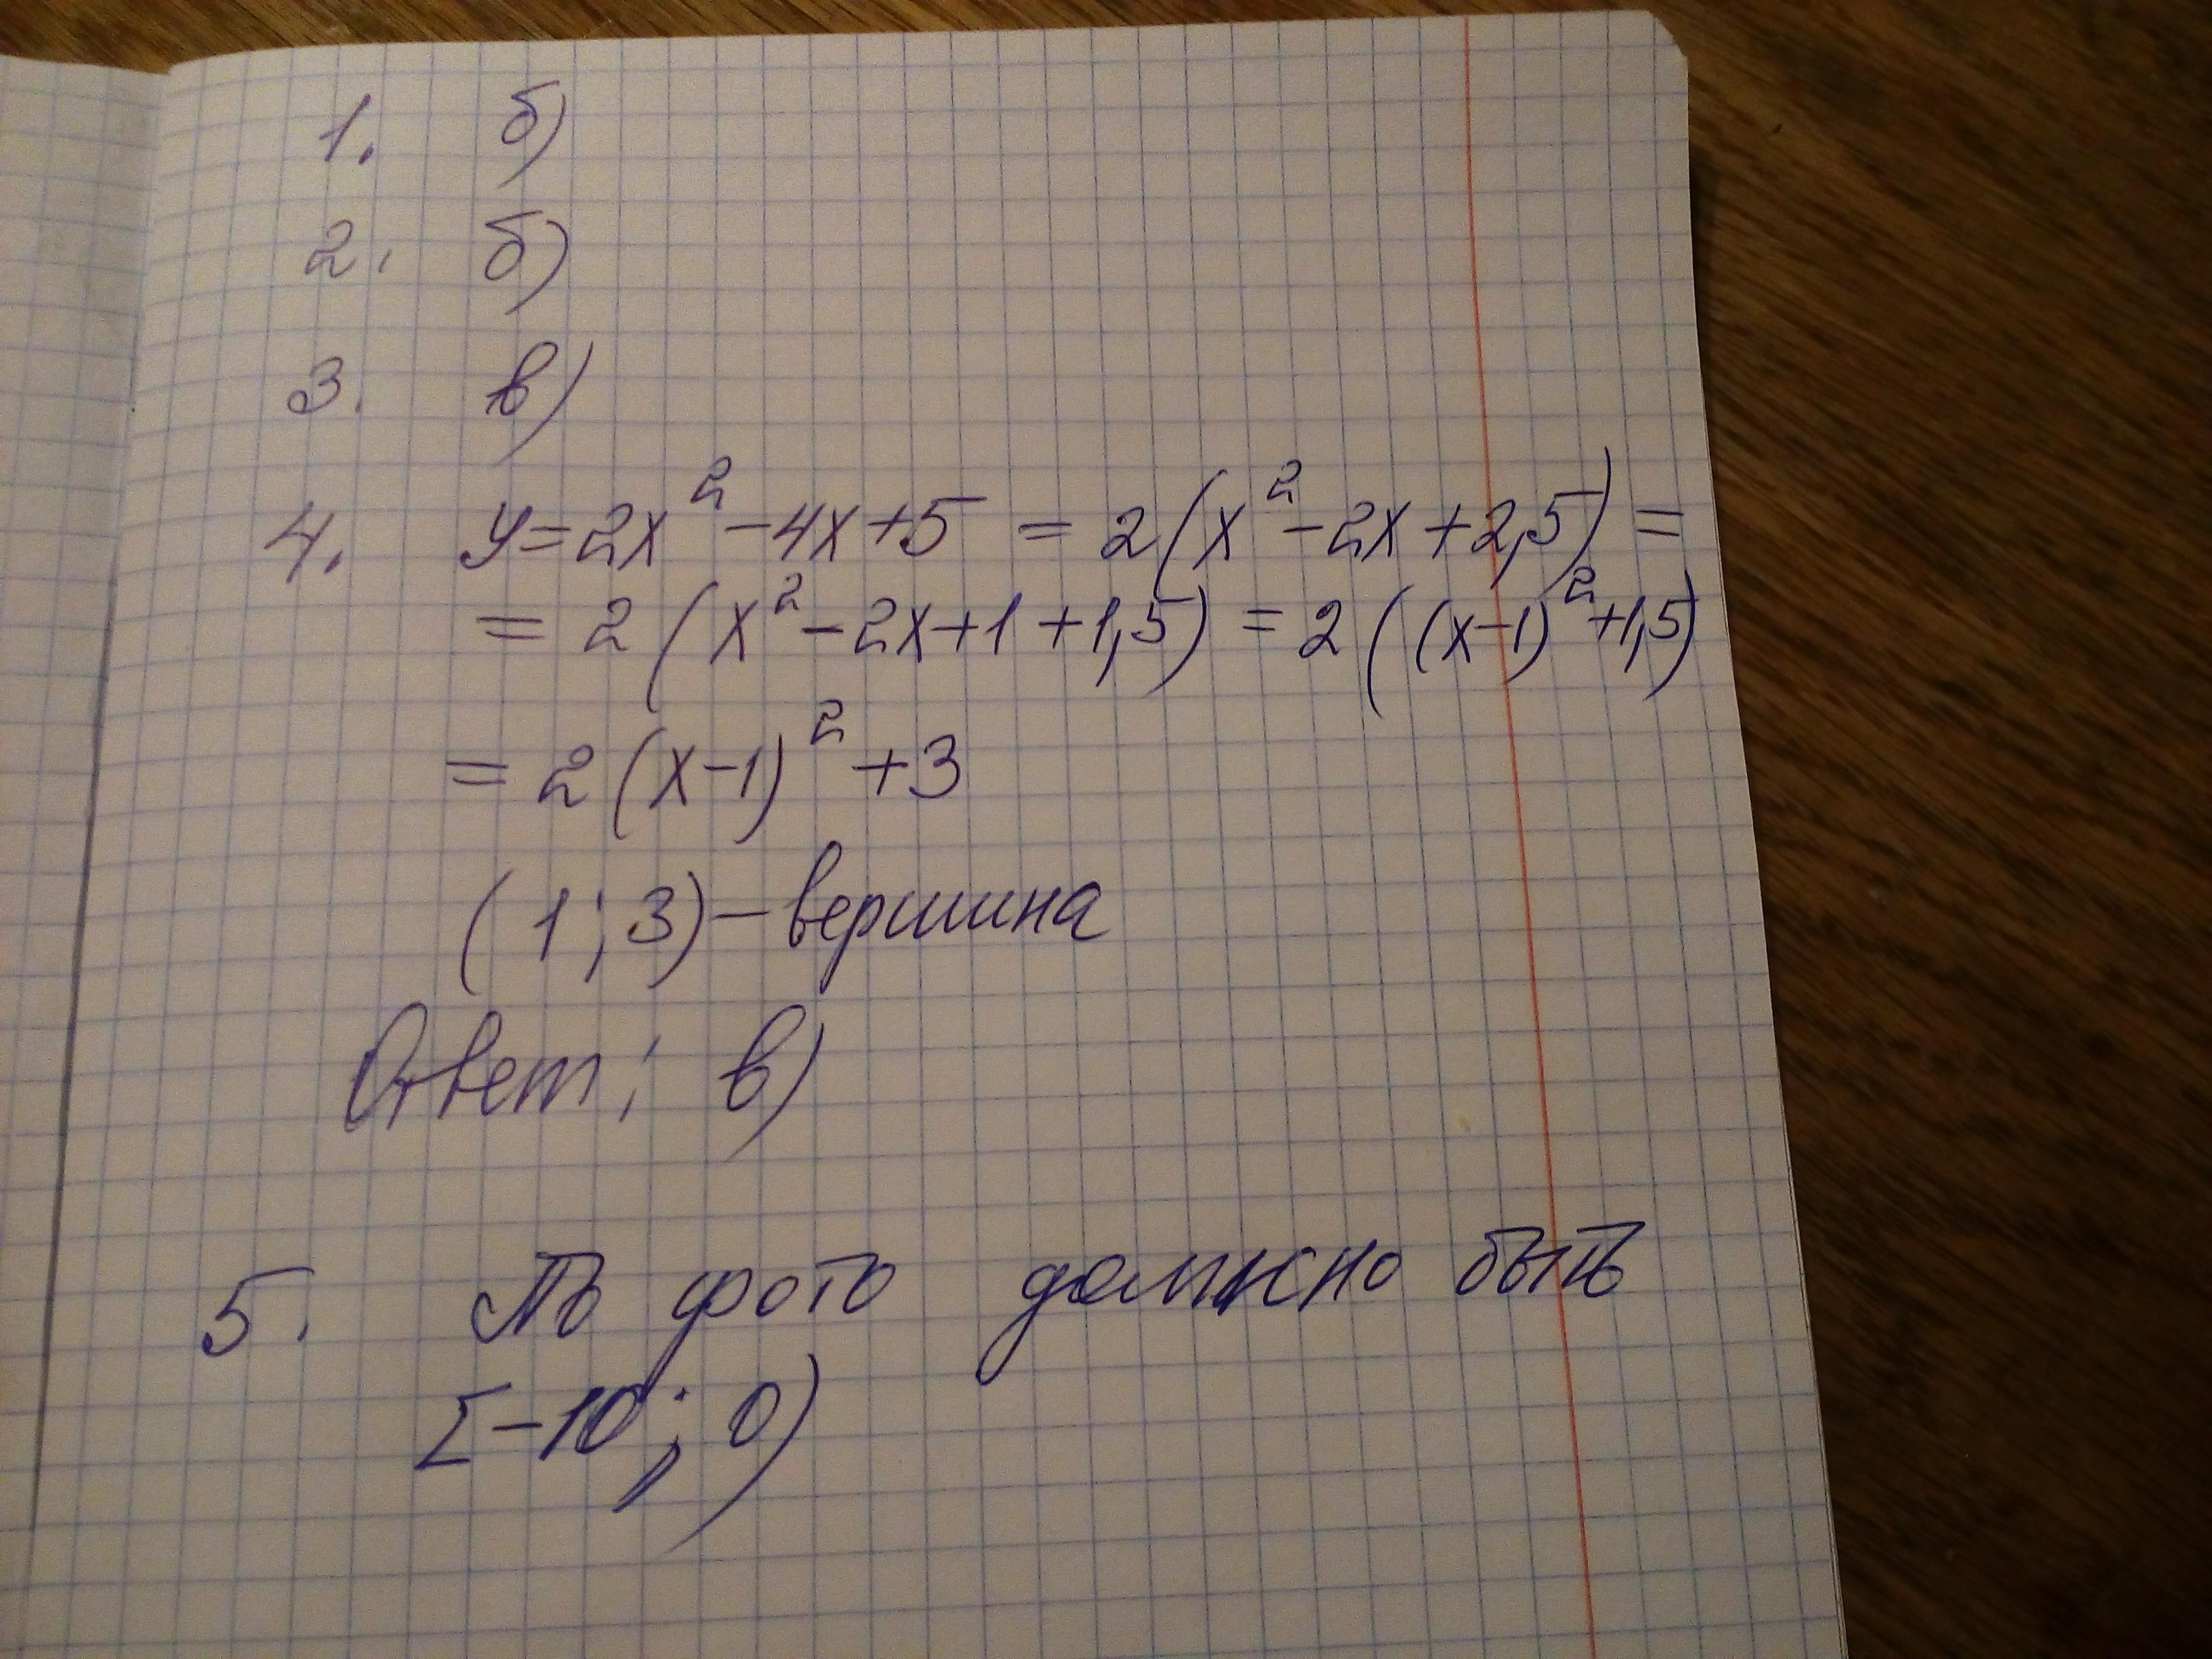 1. б)
2. б)
3. в)
4. y=2x²-4x+5 = 2(x²-2x+2,5)=
= 2(x²-2x+1+1,5) = 2((x-1)²+1,5)
= 2(x-1)²+3
(1;3)-вершина
Ответ: в)
5. фото должно быть
[-10; 0)